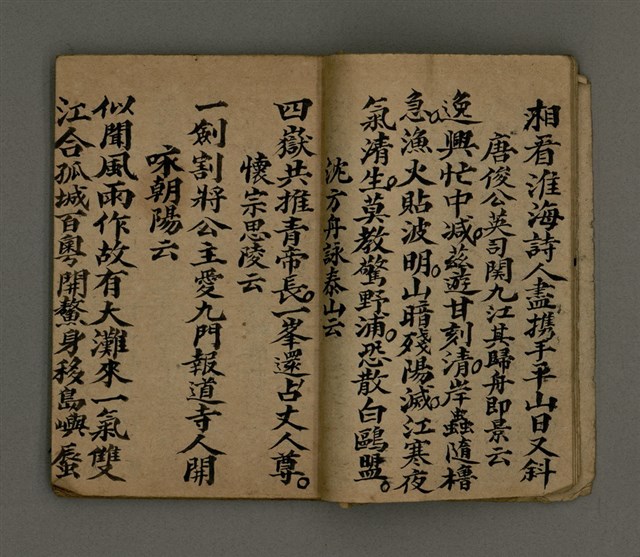 湘看淮海詩人盡携手平山日又斜
唐俊公英司関九江其歸舟即景云
逸興忙中减遊甘刻清岸蟲隨櫓
急漁火貼波明山暗殘陽滅江寒夜
氣清生莫教驚野浦恐散白鷗盟
沈方舟詠泰山云
四嶽共推青帝長一峯還占丈人尊
懷宗思陵云
一劍割將公主愛九門報道寺人開
咏朝陽云
似聞風雨作故有大灘來一氣雙
江合孤城百粤開鰲身移島嶼蜃